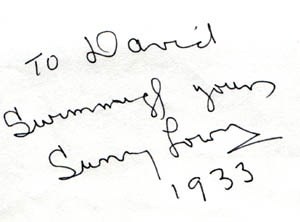 To David
Swimmingly yours
Sunny Lowry
1933